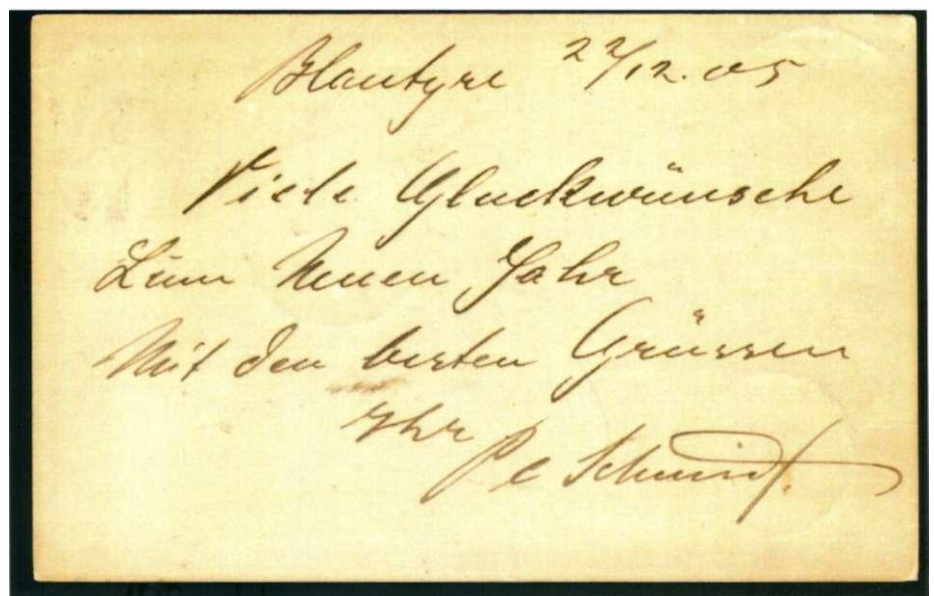 Blantyre 22/12.05
Viele Gluckwünsche
Zum Neuen Jahr
Mit den besten Grüssen
Ihr
P C Schmidt.